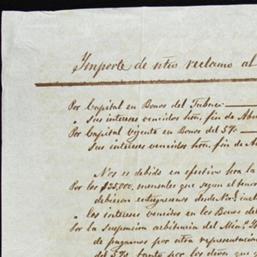 Importe de ntro reclamo al
Por Capital en Bonos del Tabaco
" Sus intereses vencidos hta. fin de
Por Capital Vigente en Bonos del 5%
Sus intereses vencidos hta. fin de A
Nos es debido en efectivo hta la
Por los $25,000, mensuales que segun el
debieron entregarsenos desde
" los intereses vencidos en los Bonos del
Por la Suspension arbitraria del
de pagarnos por otra representacion
del 5% tanto por los